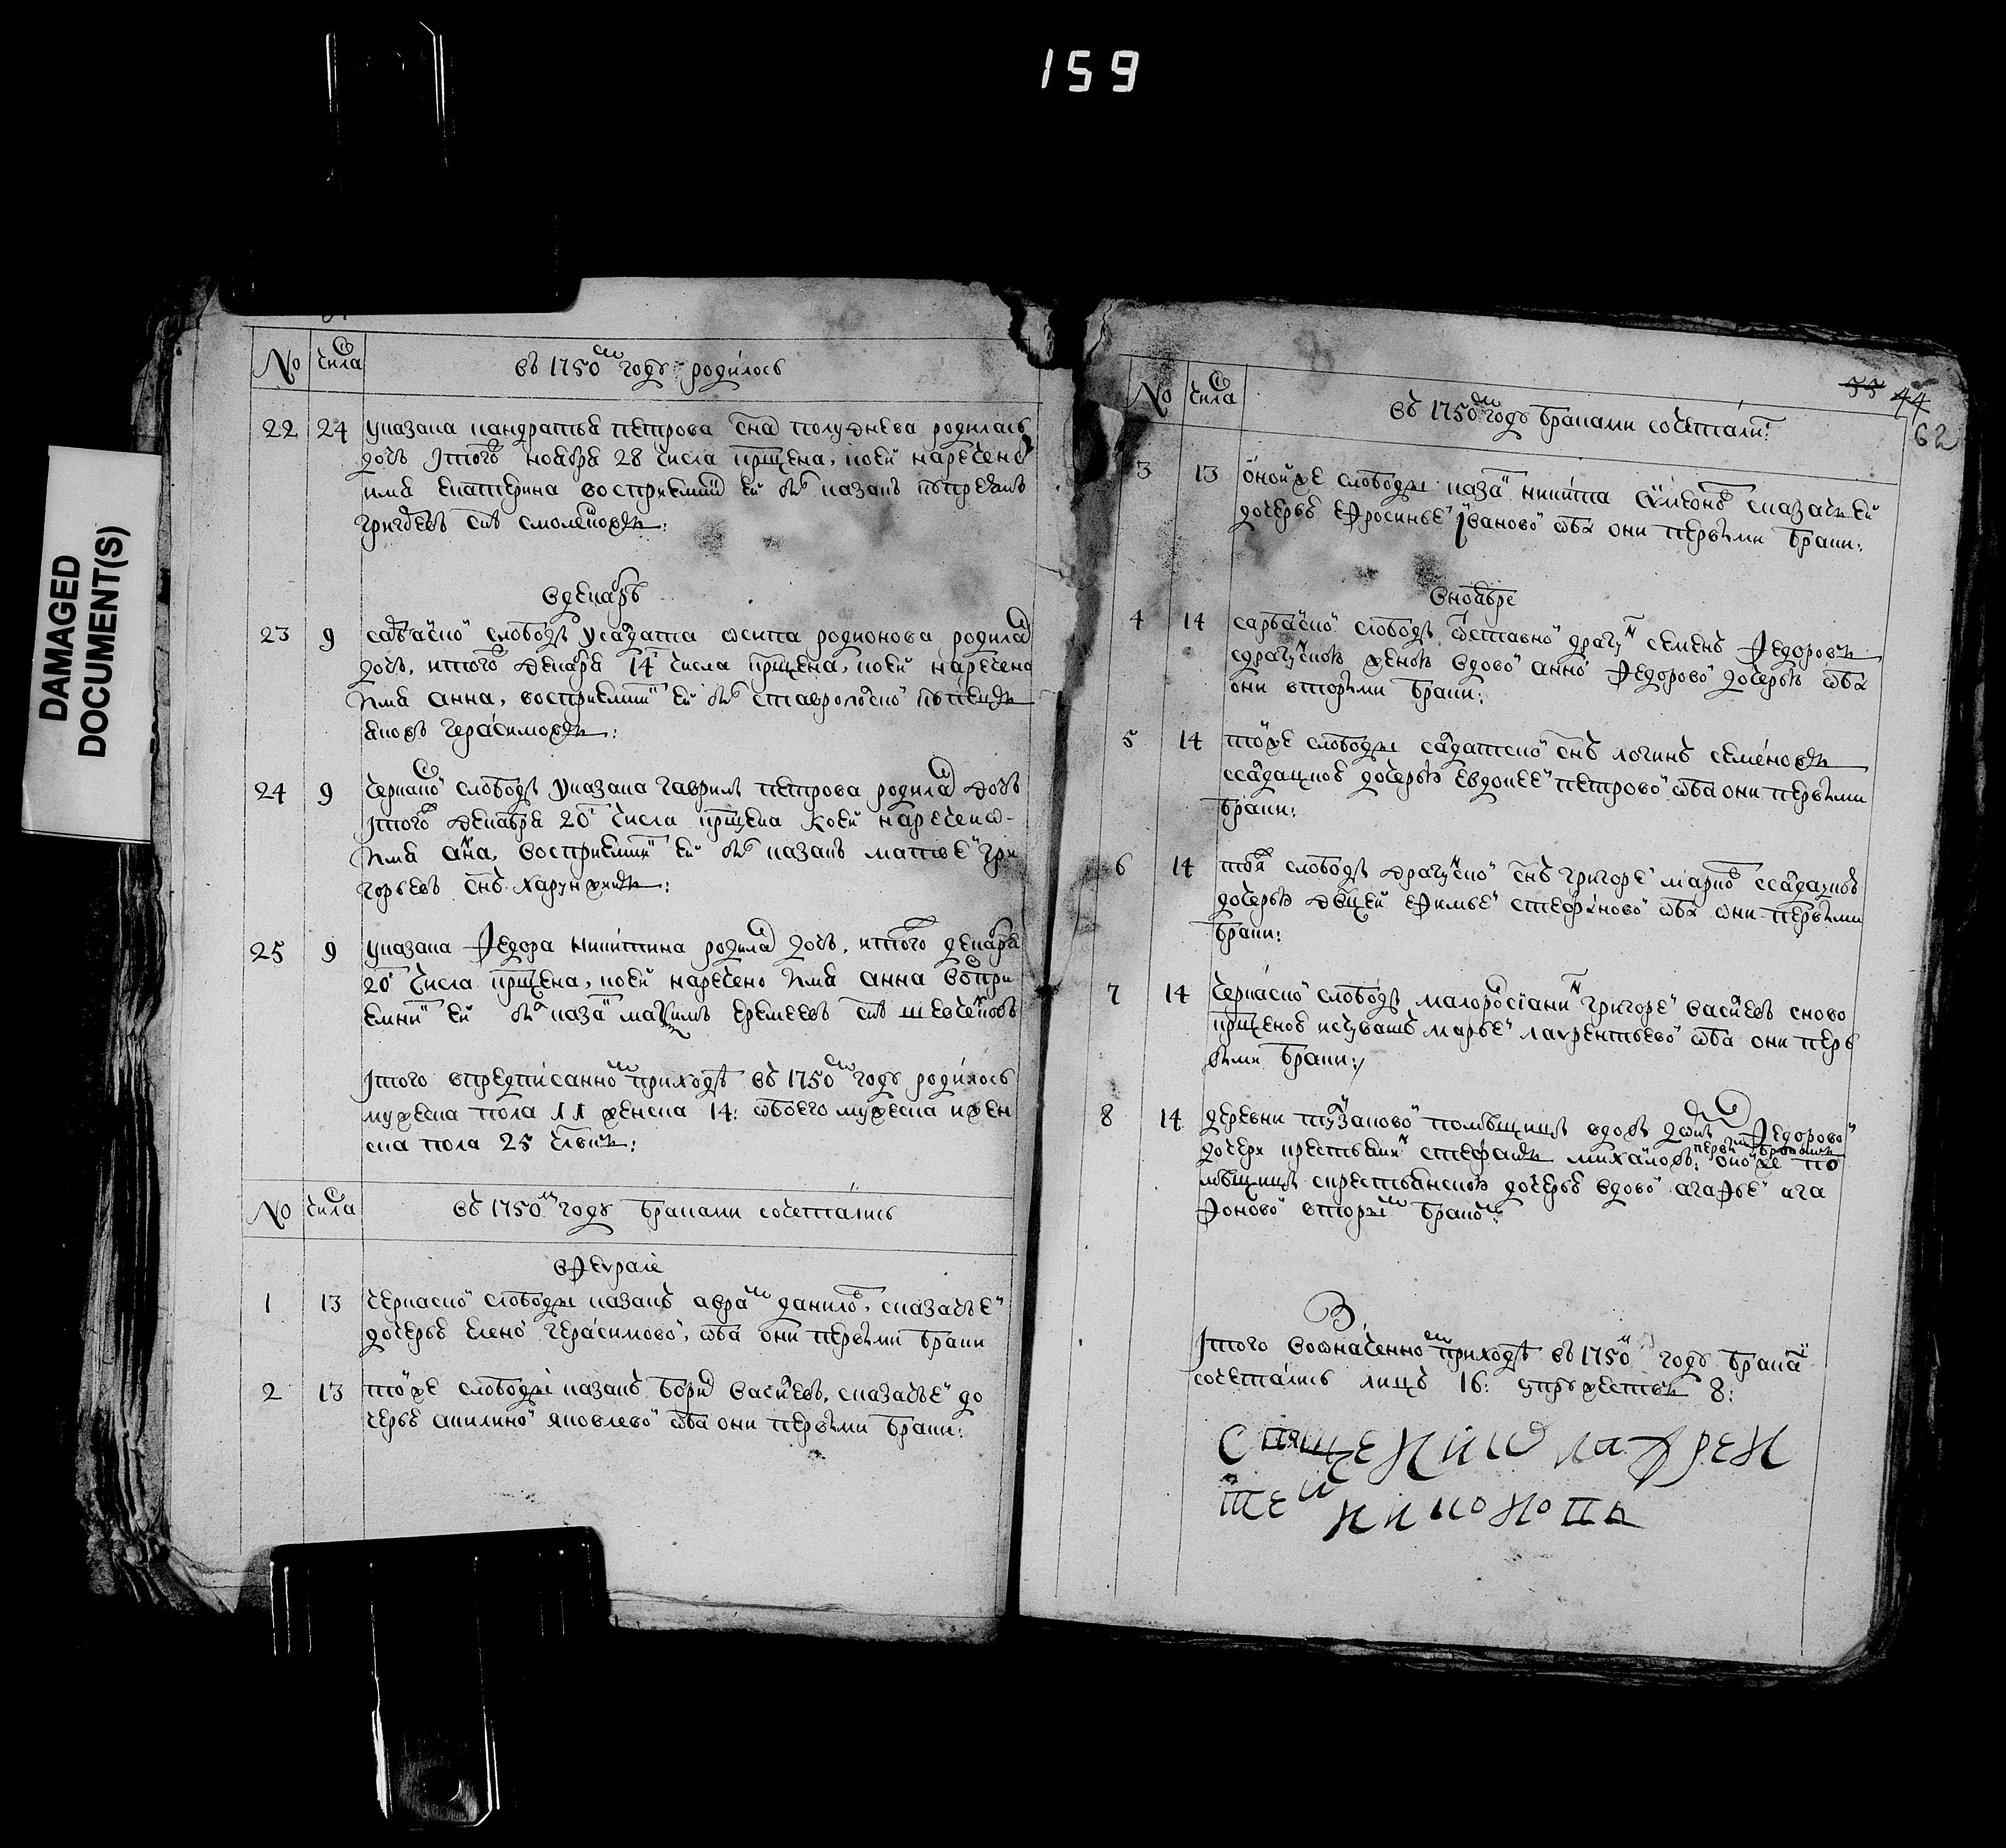 159
DAMAGED
DOCUMENT(S)
No числа въ 1750м году родилось
22 24 у казака кандратья петрова сна полуднева родилась
дочь итого ноября 28 числа крщена, коеи наречено
имя екатерина восприемник еи был казакъ
григорьевъ снъ
в декабрѣ
23 9 саръбаиской слободы у салдата осипа родионова родилас
дочь, и того декабря 14 числа крщена, коеи наречено
имя анна, восприемник еи был ставрополской купецки
яковъ герасимовъ:
24 9 черкаской слободы у казака гаврилы петрова родилас дочь
итого декабря 20 числа крщена коеи наречено
имя анна, восприемник еи был казакъ матвей гри
горьевъ снъ
25 9 у казака федора никитина родилас дочь, и того декабря
20 числа крщена, коеи наречено имя анна воспри
емник еи был казак максимъ еремеевъ снъ шевченковъ
итого в предписанном приходѣ въ 1750м году родилось
мужеска пола 11 женска 14: обоего мужеска и жен
ска пола 25 члвкъ:
No числа въ 1750м году браками сочетались
в феврале
1 13 черкаской слободы казакъ аврам данилов, с казачьей
дочерью еленой герасимовой, оба они первыми браки
2 13 той же слободы казакъ борис василевъ, с казачьей до
черью акилиной яковлевой оба они первыми браки:
55 44
62
No числа въ 1750м году браками сочетались
3 13 оной же слободы казак никита с казачеи
дочерью ефросиньей ивановой оба они первыми браки:
в ноябре
4 14 сарбайской слободы отставной драгун семенъ федоровъ
з драгунскою женою вдовой анной федоровой дочерью оба
они вторыми браки:
5 14 той же слободы салдатской снъ логинъ семеновъ
с салдацкою дочерью евдокеей петровой оба они первыми
браки:
6 14 той слободы драгунской снъ григорей марков с салдацкою
дочерью девицей ефимьей стефановой оба они первыми
браки:
7 14 черкаской слободы малоросианин григорей василевъ с ново
крщеной ис чувашъ марьей лаврентьевой оба они перв
выми браки:/
8 14 деревни помѣщицы вдовы федоровой
дочери крестьянин стефанъ михаилов первым браком оной же по
мѣщицы с крестьянскою дочерью вдовой агафьей ага
фоновой вторым браком:
итого во означенном приходѣ въ 1750м году браками
сочетались лицъ 16: супружествъ 8:
священник лаврен
тей никоновъ